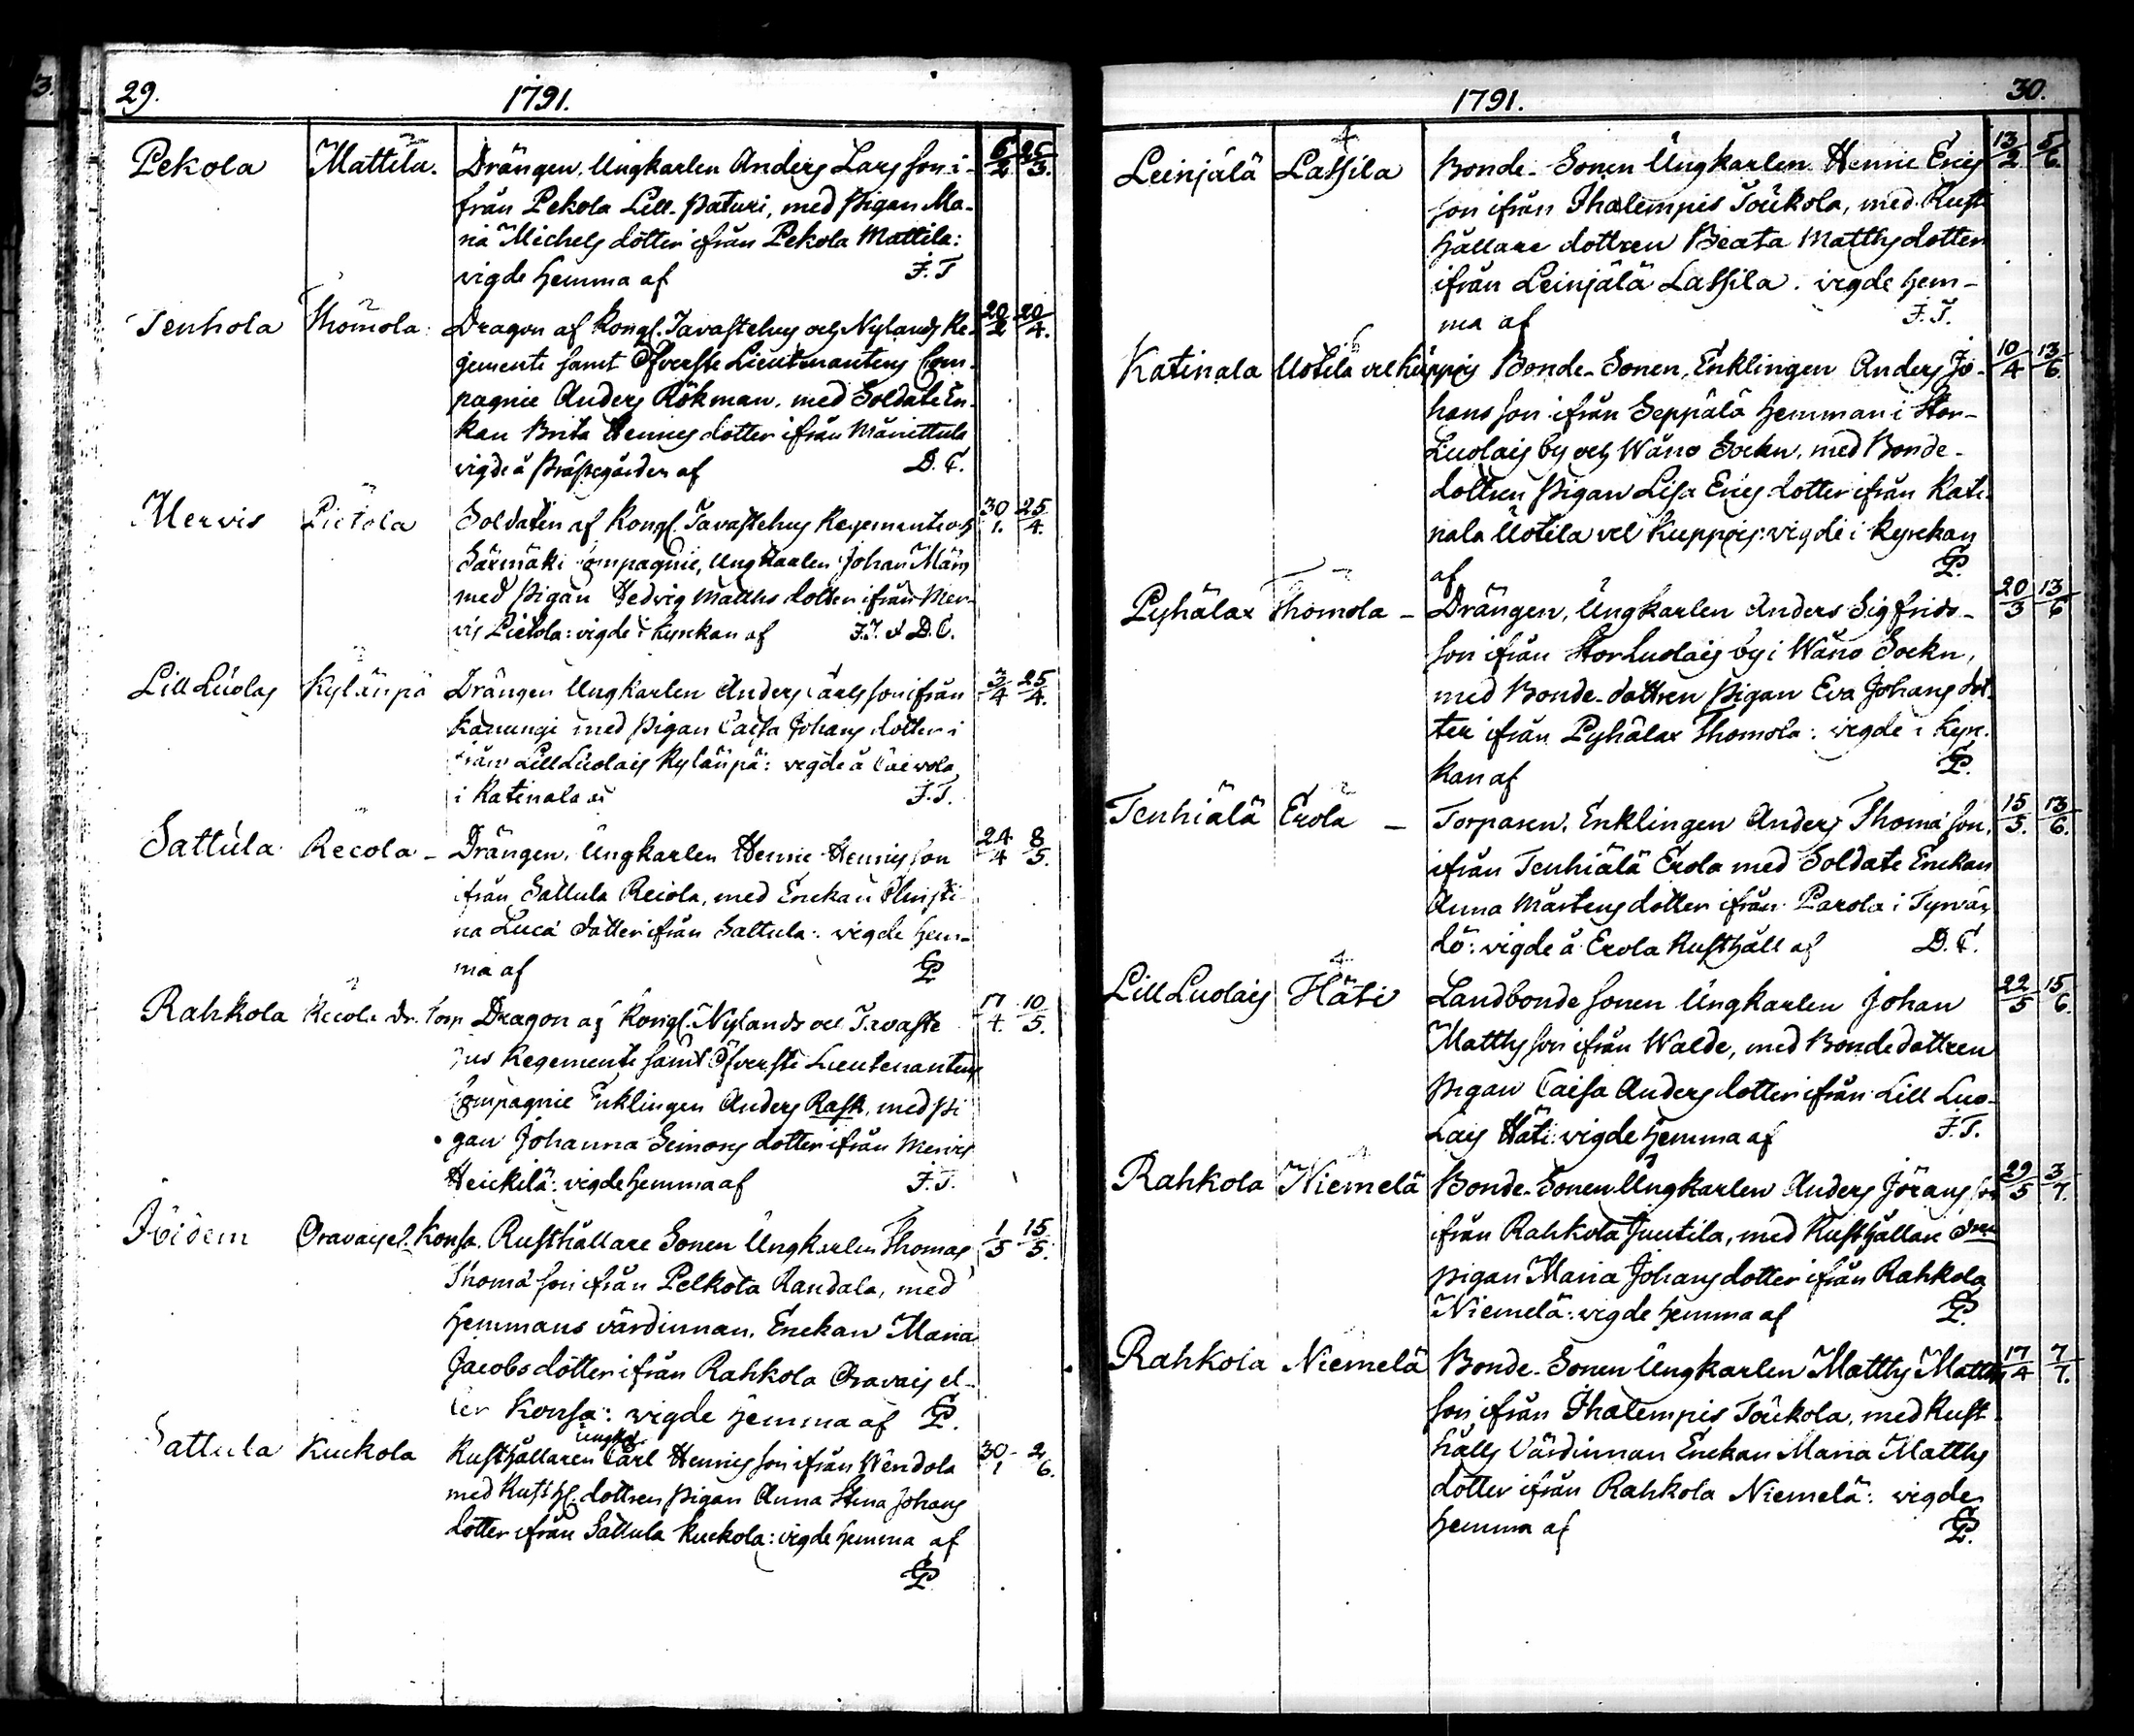 29. 1791.
Pekola Mattila. Drängen, Ungkarlen Anders Larsson i- 6/2 25/3.
från Pekola Lill-Paturi, med Pigan Ma-
ria Michels dotter ifrån Pekola Mattila:
vigde hemma af F.T
Tenhola Thomola: Dragon af Kongl. Tavastehus och Nylands Re- 20/2 20/4.
gemente samt Öfverste Lieutenantens Com-
pagnie Anders Rökman, med Soldate En-
kan Brita Hennes dotter ifrån
vigde å Prästegården af D.C.
Mervis Pietola Soldaten af Kongl. Tavastehus Regemente och 30/1. 25/4.
Särmäki Compagnie, Ungkarlen Johan
med Pigan Hedvig Matths dotter ifrån Mer-
vis Pietola: vigde i Kyrckan af F.T. & D.C.
Lill Luolais Kylänpä Drängen Ungkarlen Anders Carls son ifrån 3/4 25/4.
med Pigan Caisa Johans dotter i
från Lill Luolais Kylänpä: vigde å
i Katinala af F.T.
Sattula Recola - Drängen, Ungkarlen Hennie Hennis son 24/4 8/5.
ifrån Sattula Recola, med Enckan Christi
na Luca dotter ifrån Sattula: vigde hem-
ma af GP
Rahkola Recola dr. Torp Dragon af Kongl. Nylands och Tavaste 17/4. 10/5.
hus Regemente samt Öfverste Lieutenantens
Compagnie Enklingen Anders Rask, med Pi
gan Johanna Simons dotter ifrån Mervis
Heickilä: vigde hemma af F.T.
Oravais el. Konsa. Rusthållare Sonen Ungkarlen Thomas 1/5 15/5.
Thomæ son ifrån Pelkola Randala, med
Hemmans värdinnan, Enckan Maria
Jacobs dotter ifrån Rahkola Oravais el-
ler Konsa: vigde hemma af GP.
ungkl.
Sattula Kuckola Rusthållaren Carl Hennes son ifrån Wendola 30/1 2/6.
med Rusth. dottren Pigan Anna Stina Johans
dotter ifrån Sattula Kuckola: vigde hemma af
GP
1791. 30.
4
Leinjälä Lassila Bonde-Sonen Ungkarlen Hennie Erics 13/2 5/6.
son ifrån Ihalempis Töükola, med Rust
hållare dottren Beata Matths dotter
ifrån Leinjälä Lassila. vigde hem-
ma af F.T.
Katinala Uotila vel Kuppois Bonde-Sonen, Enklingen Anders Jo- 10/4 13/6.
hans son ifrån Seppälä hemman i Stor-
Luolais by och Wåno Sockn, med Bonde-
dottren Pigan Lisa Erics dotter ifrån Kati-
nala Uotila vel Kuppois: vigde i Kyrckan
af GP.
Pyhälax Thomola - Drängen, Ungkarlen Anders Sigfrids- 20/3 13/6
son ifrån Stor Luolais by i Wåno Sockn,
med Bonde-dottren Pigan Eva Johans dot-
ter ifrån Pyhälax Thomola: vigde i Kyr-
kan af GP.
Tenhiälä Erola - Torparen, Enklingen Anders Thomæ son, 15/5. 13/6.
ifrån Tenhiälä Erola med Soldate Enckan
Anna Mårtens dotter ifrån Parola i Tyrvän
tö: vigde å Erola Rusthåll af D.C.
4
Lill Luolais Häti Landbonde sonen Ungkarlen Johan 22/5 15/6.
Matths son ifrån Walde, med Bondedottren
Pigan Caisa Anders dotter ifrån Lill Luo-
lais Häti: vigde hemma af F.T.
Rahkola Niemelä Bonde-Sonen Ungkarlen Anders Jörans son 29/5 3/7.
ifrån Rahkola Juutila, med Rusthållare dren
Pigan Maria Johans dotter ifrån Rahkola
Niemelä: vigde hemma af GP.
Rahkola Niemelä Bonde-Sonen Ungkarlen Matths Matths 17/4 7/7.
son ifrån Ihalempis Töükola, med Rust
hålls Värdinnan Enckan Maria Matths
dotter ifrån Rahkola Niemelä: vigde
hemma af GP.